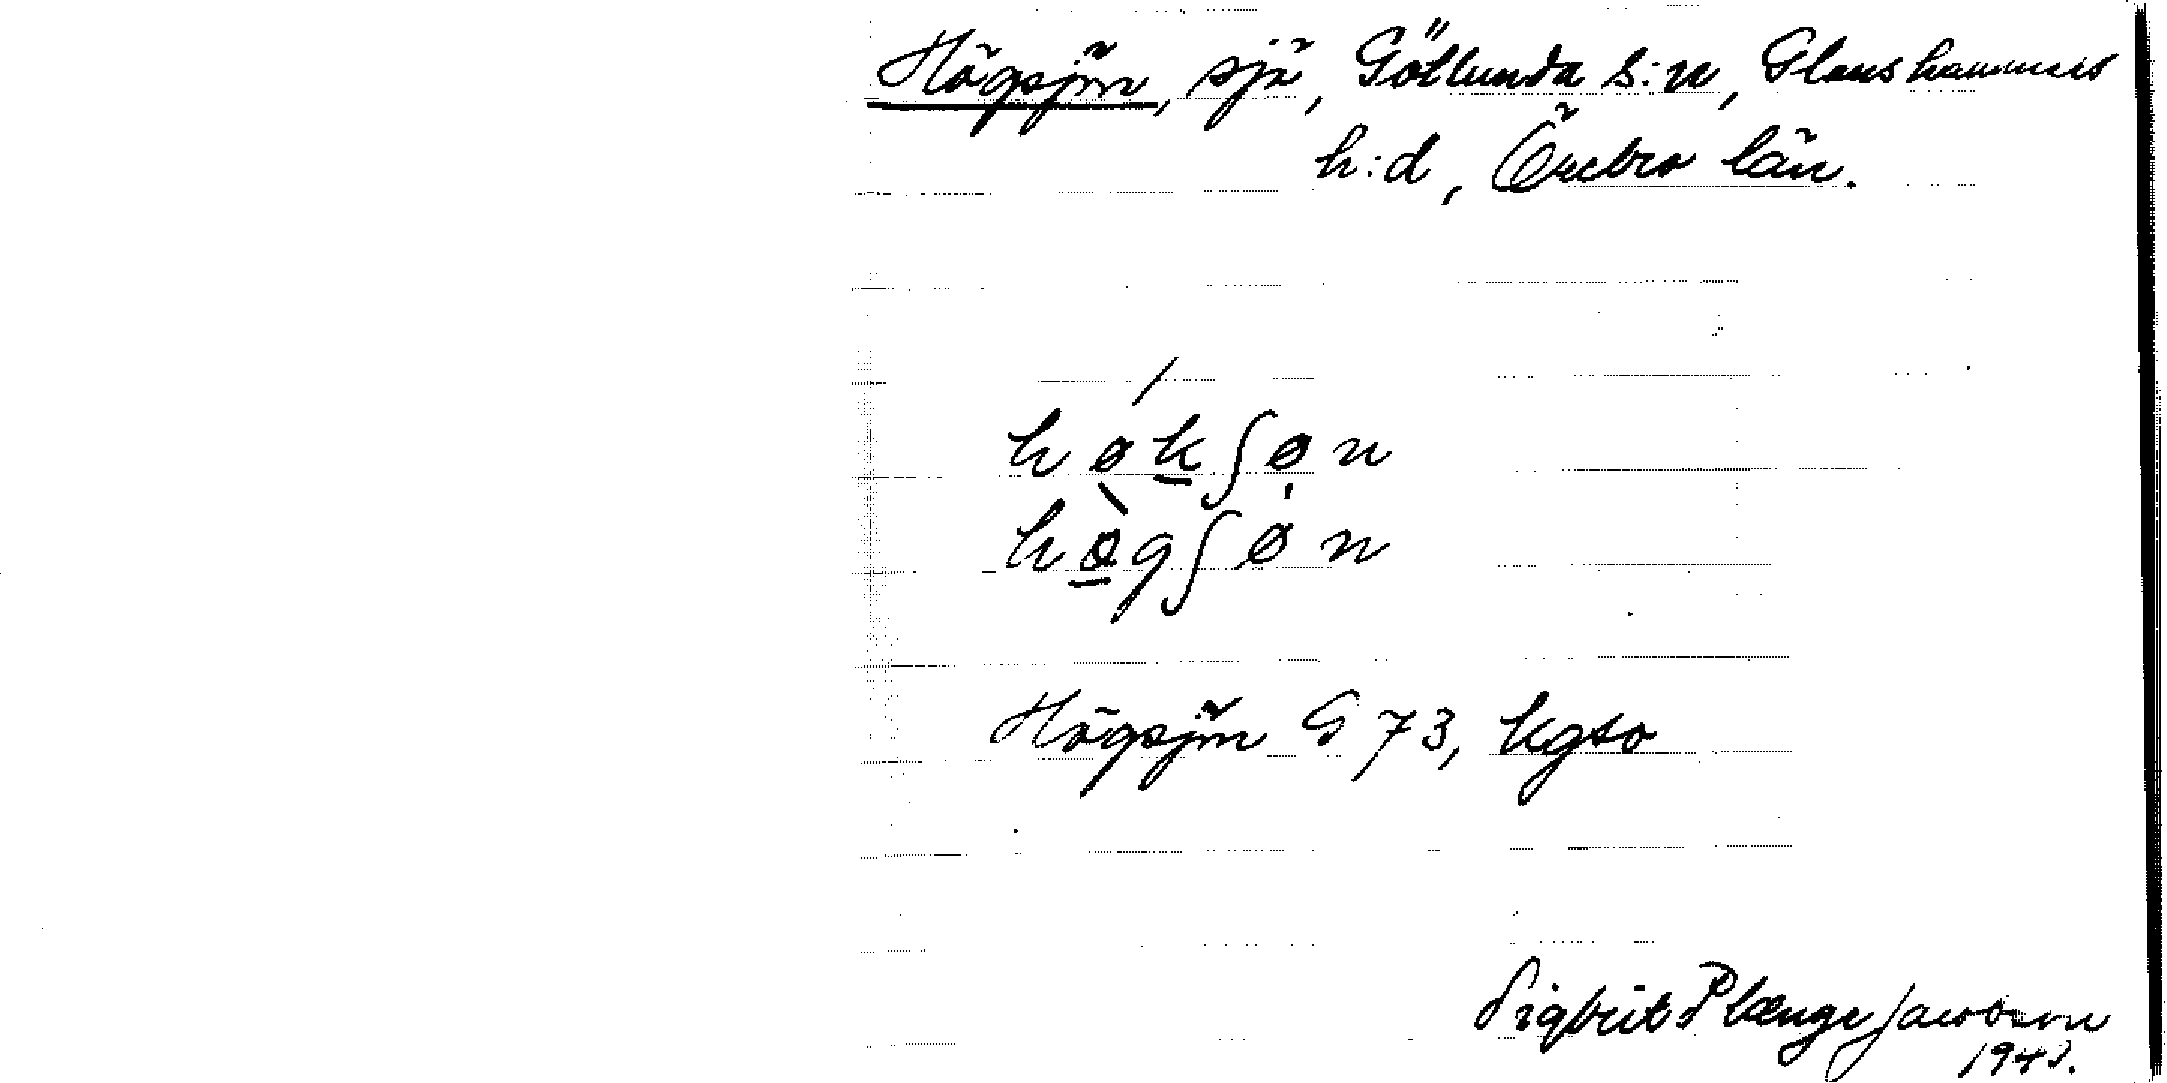 Högsjön, sjö, Götlunda s:n, Glanshammars
h:d, Örebro län.
høkʃøn
høgʃøn
Högsjön G 73, kgso
Sigbrit Plænge Jacobson